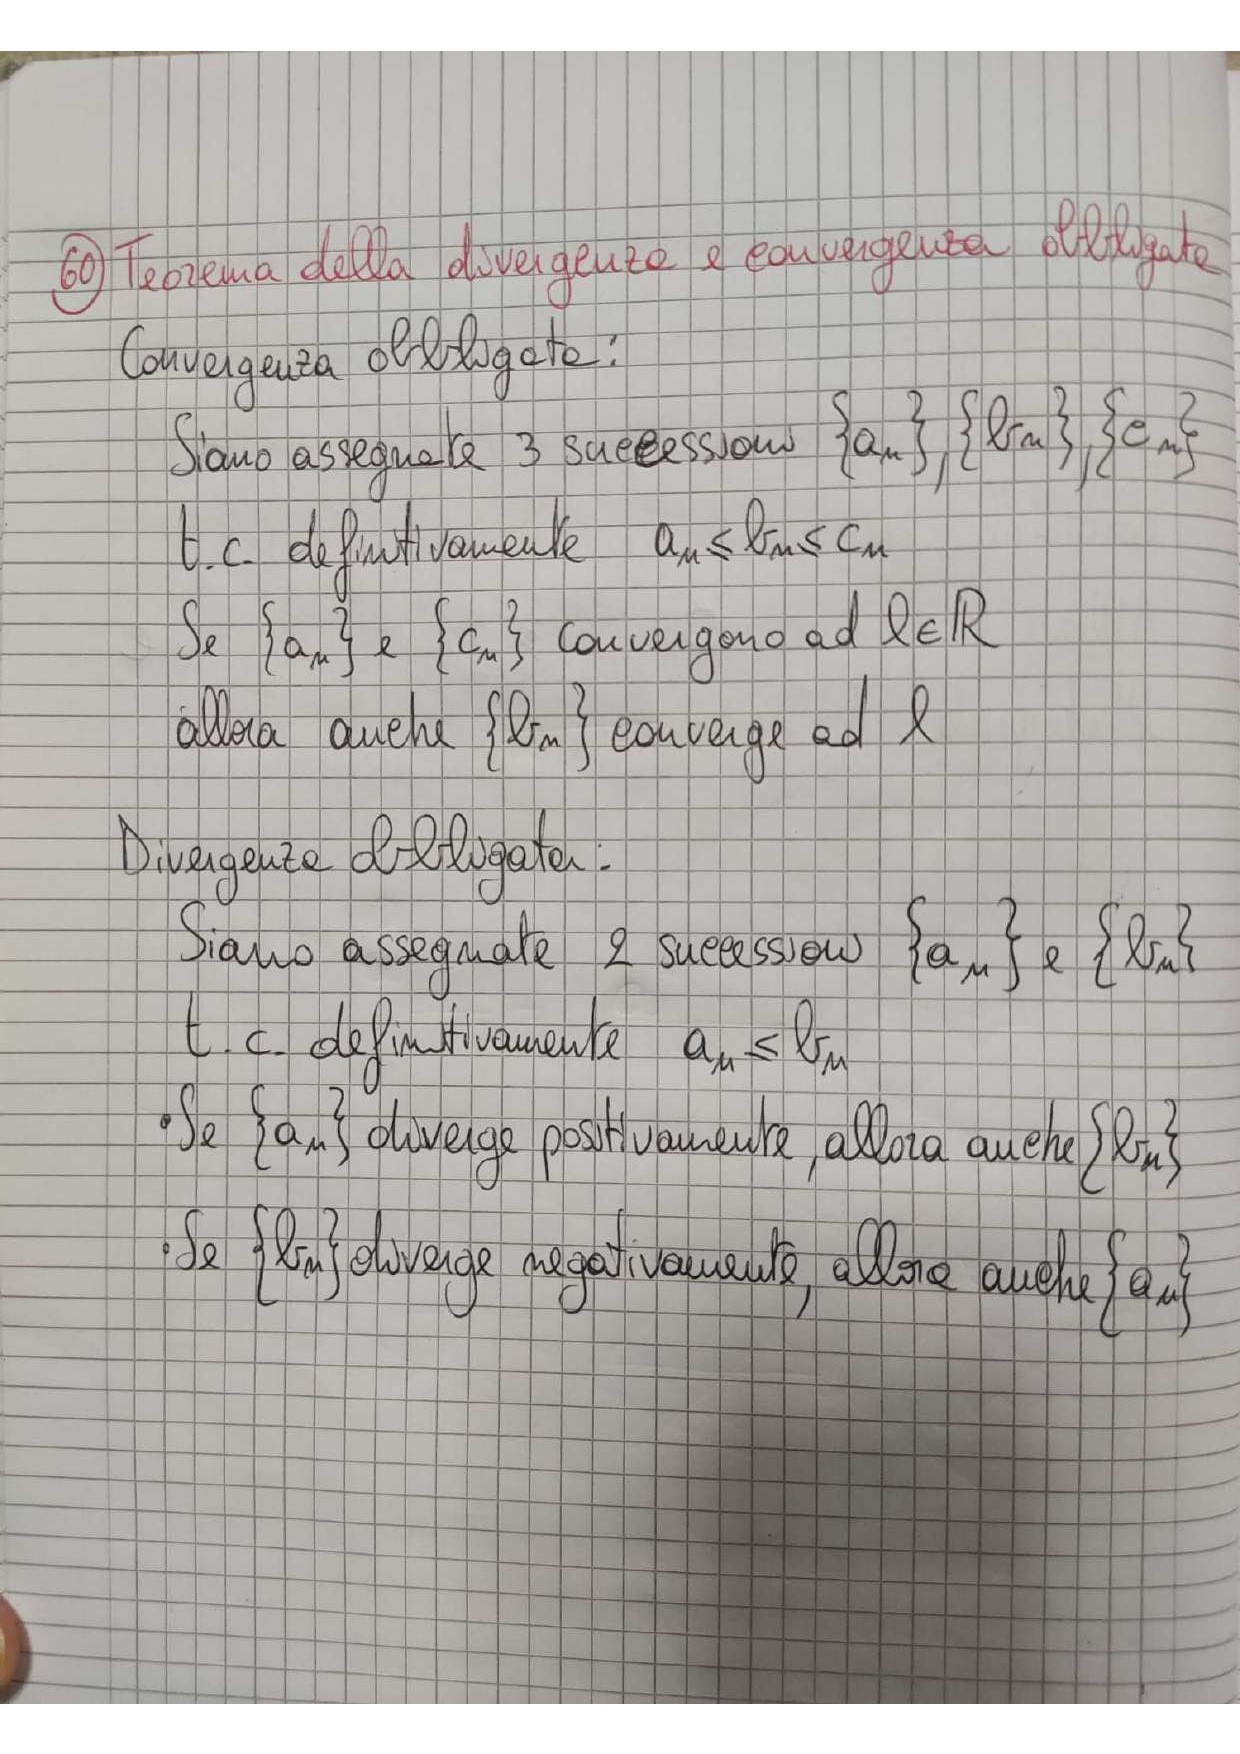 60) Teorema della divergenza e convergenza obbligata
Convergenza obbligata:
Siano assegnate 3 successioni {aₙ}, {bₙ}, {cₙ}
t.c. definitivamente aₙ ≤ bₙ ≤ cₙ
Se {aₙ} e {cₙ} convergono ad l∈ℝ
allora anche {bₙ} converge ad l
Divergenza obbligata:
Siano assegnate 2 successioni {aₙ} e {bₙ}
t.c. definitivamente aₙ ≤ bₙ
• Se {aₙ} diverge positivamente, allora anche {bₙ}
• Se {bₙ} diverge negativamente, allora anche {aₙ}